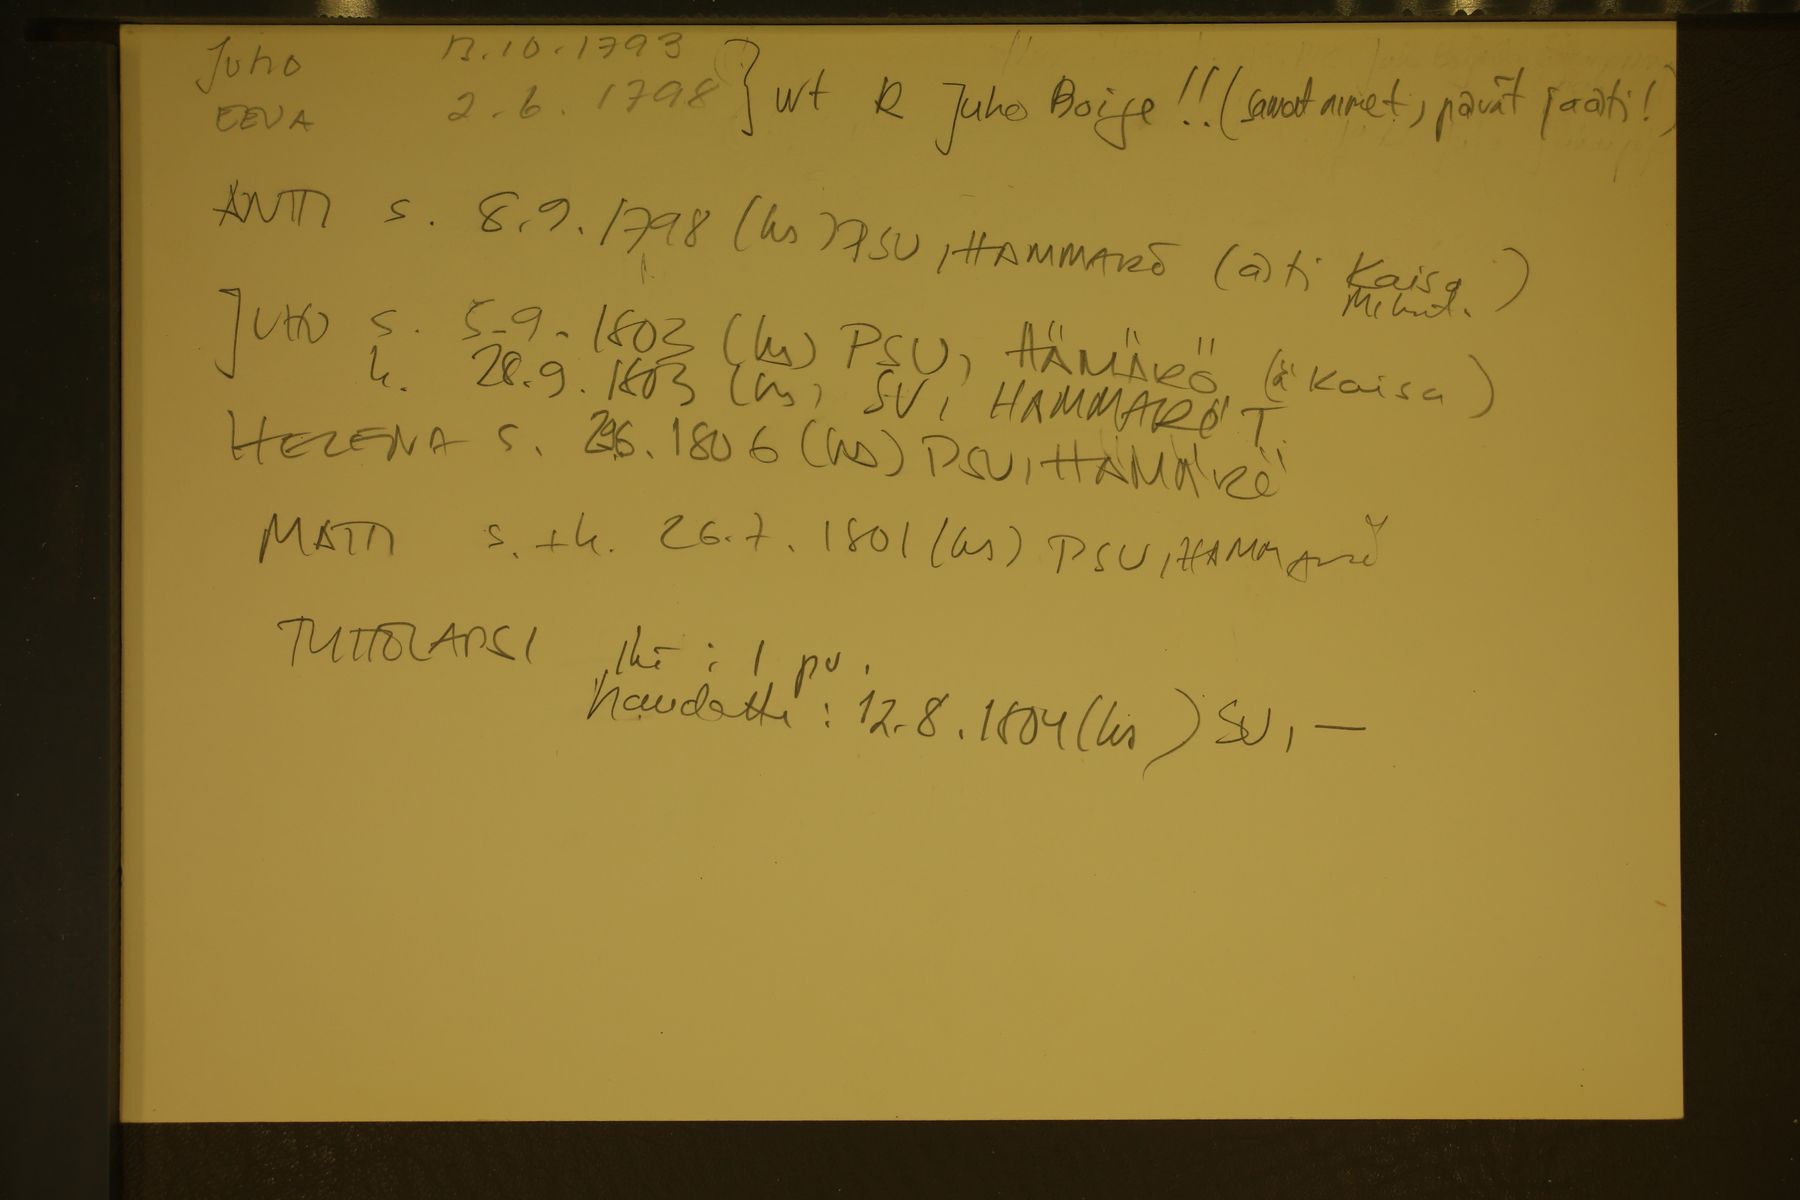 Juho 13.10.1793
EEVA 2.6.1798 } wt R Juho Boije!! (samat nimet, päivät ja äiti!)
ANTTI s. 8.9.1798 (ks) PSU, HAMMARÖ (äiti Kaisa
Mikont.)
JUHO s. 5.9.1803 (ks) PSU, HÄMÄRÖ (ä Kaisa)
k. 28.9.1803 (ks, SU, HAMMARÖ T
HELENA s. 1806 (ks) PSU, HÄMÄRÖ
MATTI s. + k. 26.7.1801 (ks) PSU, HAMMARÖ
TYTTÖLAPSI Ikä: 1 pv.
haudattu: 12.8.1804 (ks) SU, —